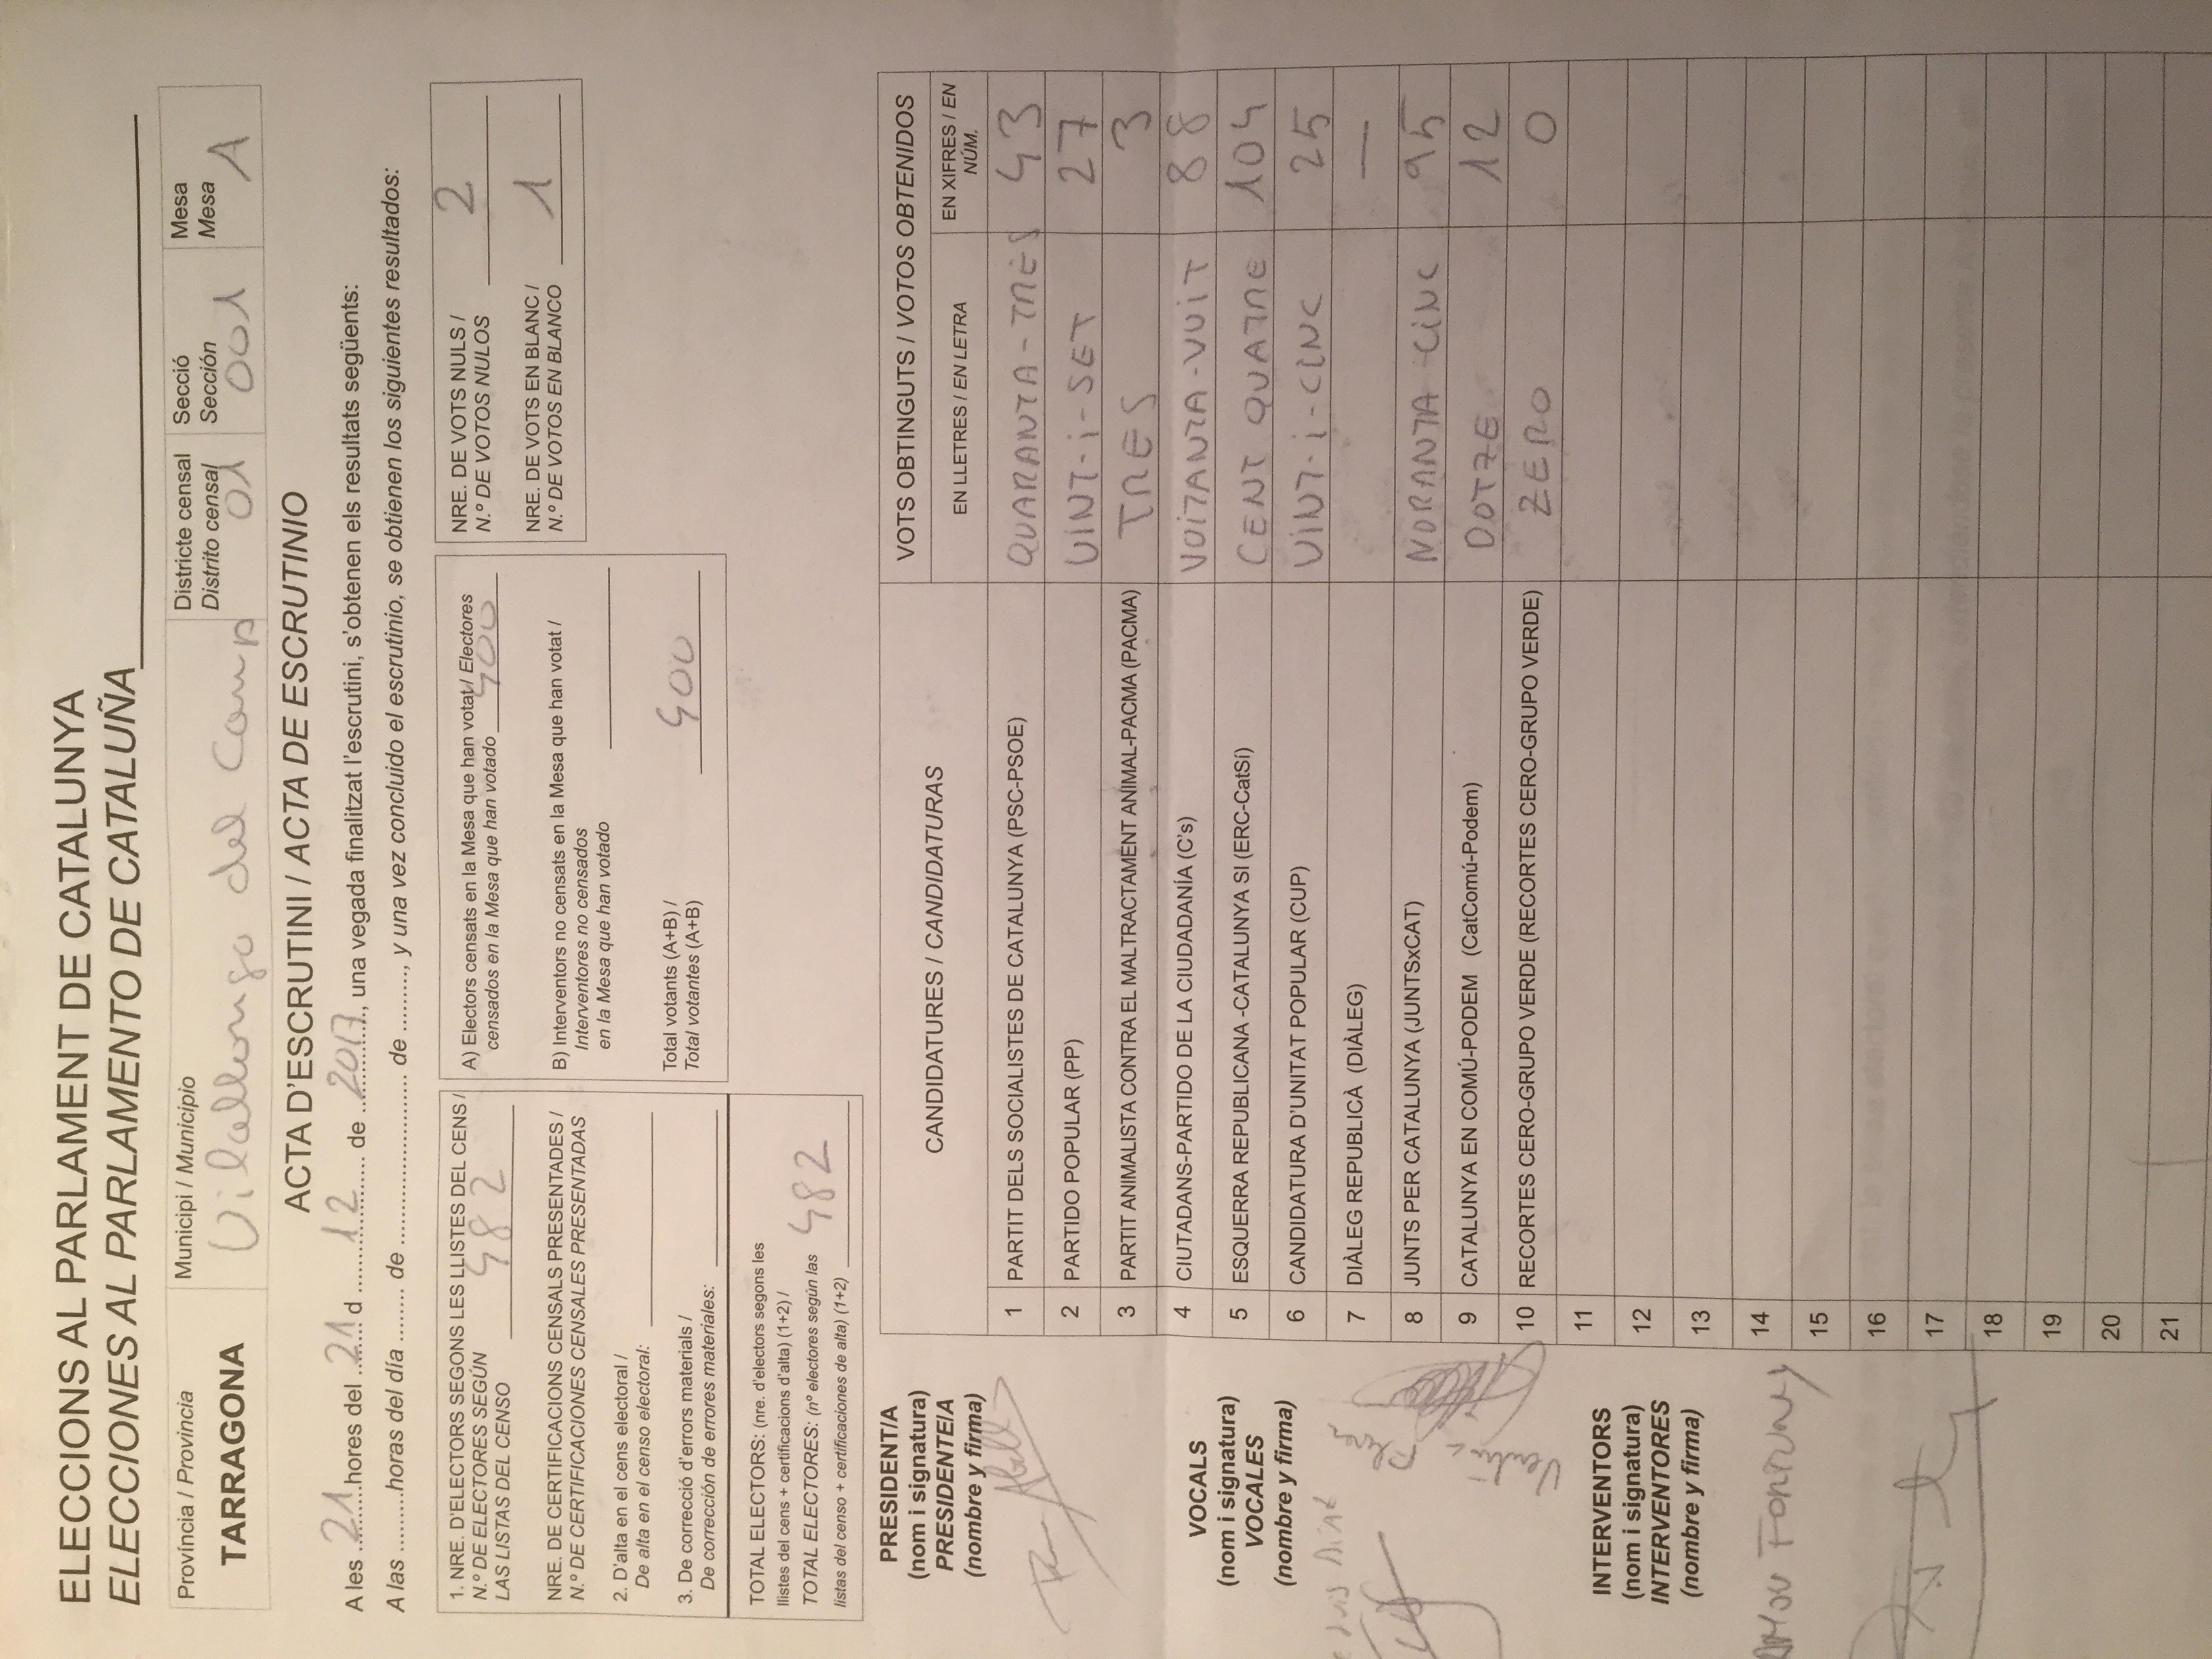 ELECCIONS AL PARLAMENT DE CATALUNYA
ELECCIONES AL PARLAMENTO DE CATALUÑA
Província / Provincia
TARRAGONA
Municipi / Municipio
Vilallonga del Camp
Districte censal
Distrito censal
01
Secció
Sección
001
Mesa
Mesa
A
ACTA D'ESCRUTINI / ACTA DE ESCRUTINIO
A les 21 hores del 21 d 12 de 2017, una vegada finalitzat l'escrutini, s'obtenen els resultats següents:
A las .........horas del día ........ de ......................... de ........., y una vez concluido el escrutinio, se obtienen los siguientes resultados:
1. NRE. D'ELECTORS SEGONS LES LLISTES DEL CENS /
N.º DE ELECTORES SEGÚN
LAS LISTAS DEL CENSO 482
NRE. DE CERTIFICACIONS CENSALS PRESENTADES /
N.º DE CERTIFICACIONES CENSALES PRESENTADAS
2. D'alta en el cens electoral /
De alta en el censo electoral:
3. De correcció d'errors materials /
De corrección de errores materiales:
TOTAL ELECTORS: (nre. d'electors segons les
llistes del cens + certificacions d'alta) (1+2) /
TOTAL ELECTORES: (nº electores según las
listas del censo + certificaciones de alta) (1+2) 482
A) Electors censats en la Mesa que han votat / Electores
censados en la Mesa que han votado 400
B) Interventors no censats en la Mesa que han votat /
Interventores no censados
en la Mesa que han votado
Total votants (A+B) /
Total votantes (A+B) 400
NRE. DE VOTS NULS /
N.º DE VOTOS NULOS 2
NRE. DE VOTS EN BLANC /
N.º DE VOTOS EN BLANCO 1
PRESIDENT/A
(nom i signatura)
PRESIDENTE/A
(nombre y firma)
VOCALS
(nom i signatura)
VOCALES
(nombre y firma)
Luis
INTERVENTORS
(nom i signatura)
INTERVENTORES
(nombre y firma)
FORTUNY
CANDIDATURES / CANDIDATURAS
VOTS OBTINGUTS / VOTOS OBTENIDOS
EN LLETRES / EN LETRA
EN XIFRES / EN
NÚM.
1 PARTIT DELS SOCIALISTES DE CATALUNYA (PSC-PSOE) QUARANTA-TRES 43
2 PARTIDO POPULAR (PP) VINT-i-SET 27
3 PARTIT ANIMALISTA CONTRA EL MALTRACTAMENT ANIMAL-PACMA (PACMA) TRES 3
4 CIUTADANS-PARTIDO DE LA CIUDADANÍA (C's) VUITANTA-VUIT 88
5 ESQUERRA REPUBLICANA -CATALUNYA SI (ERC-CatSí) CENT QUATRE 104
6 CANDIDATURA D'UNITAT POPULAR (CUP) VINT-i-CINC 25
7 DIÀLEG REPUBLICÀ (DIÀLEG) —
8 JUNTS PER CATALUNYA (JUNTSxCAT) NORANTA-CINC 95
9 CATALUNYA EN COMÚ-PODEM (CatComú-Podem) DOTZE 12
10 RECORTES CERO-GRUPO VERDE (RECORTES CERO-GRUPO VERDE) ZERO 0
11
12
13
14
15
16
17
18
19
20
21